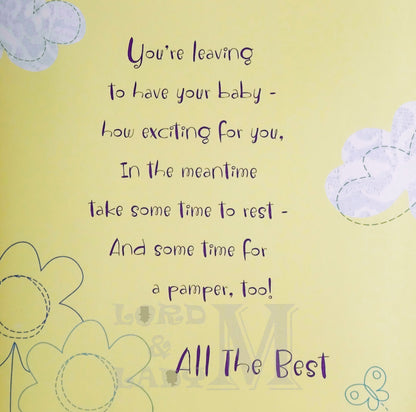 You're leaving
to have your baby -
how exciting for you,
In the meantime
take some time to rest -
And some time for
a pamper, too!
LORD
&
LADY
M
All The Best